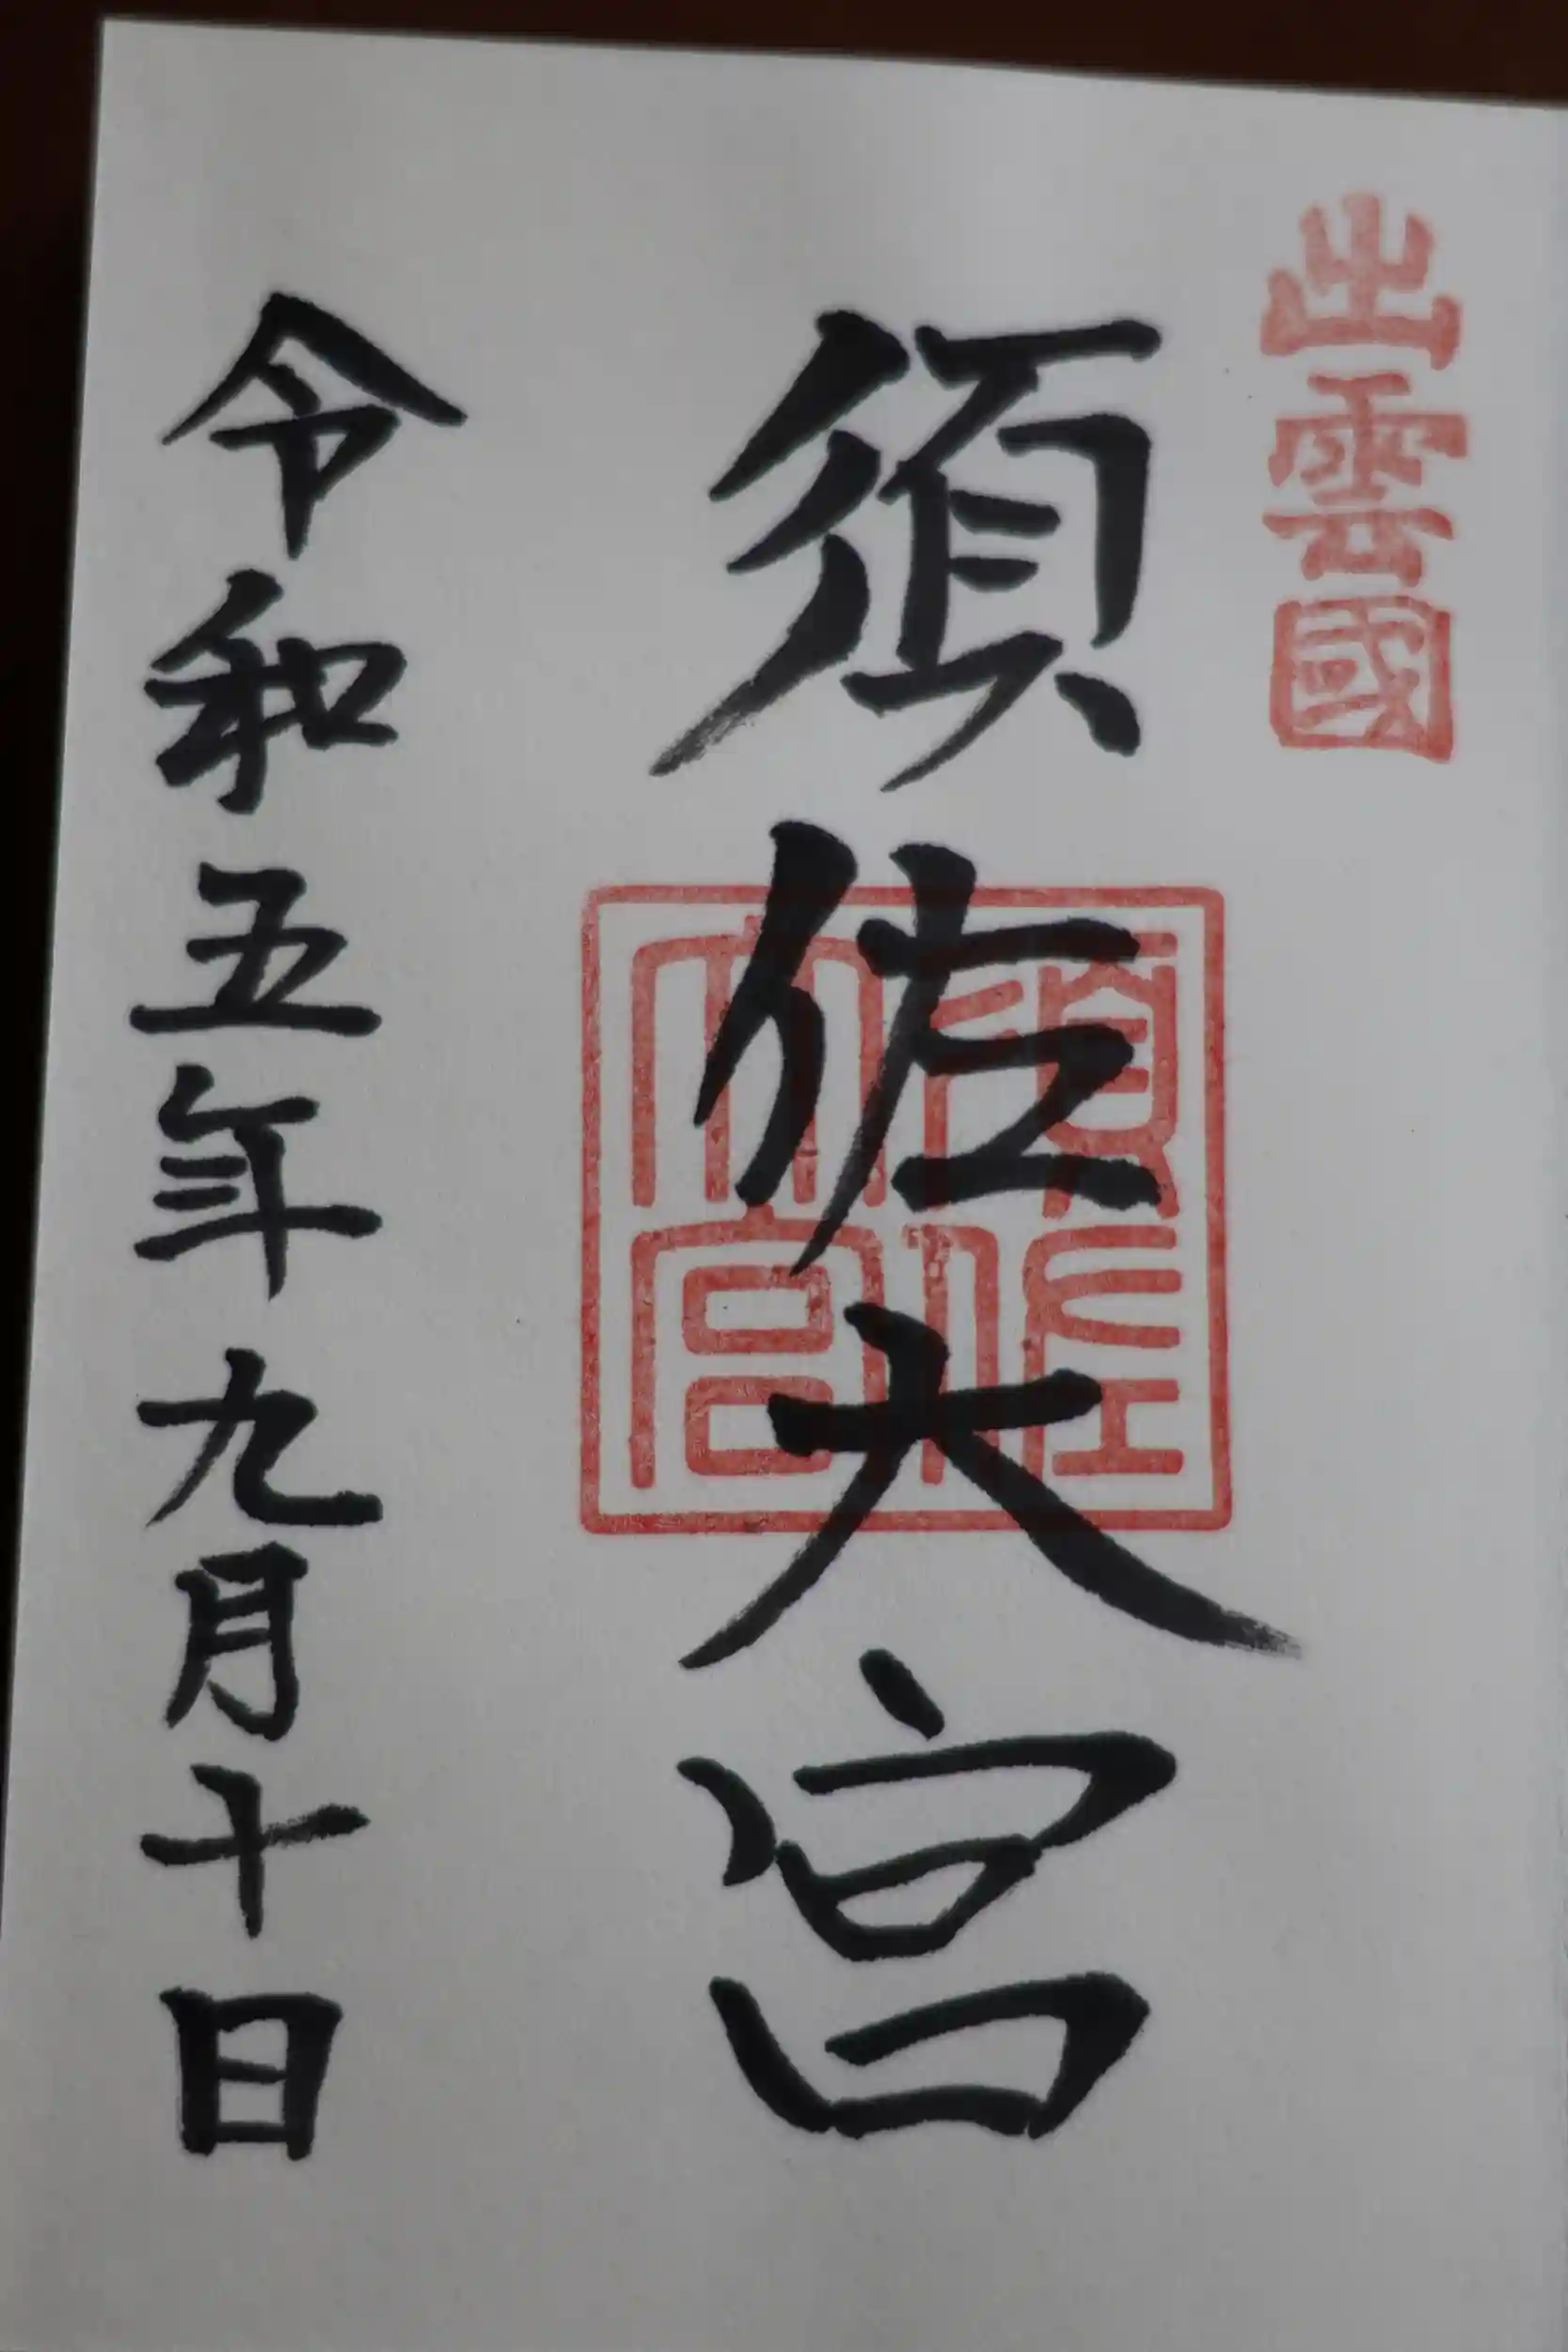 出雲國
須佐大宮
須佐大宮
令和五年九月十日